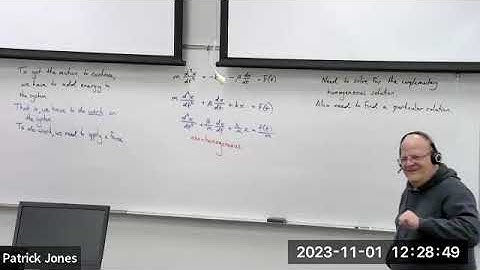 To get the motion to continue,
we have to add energy to
the system.
That is, we have to do work on
the system
To do work, we need to apply a force.
m d²x/dt² = -kx - β dx/dt + F(t)
m d²x/dt² + β dx/dt + kx = F(t)
d²x/dt² + β/m dx/dt + k/m x = F(t)/m
non-homogeneous
Need to solve for the complementary
homogeneous solution.
Also need to find a particular solution.
Patrick Jones
2023-11-01 12:28:49